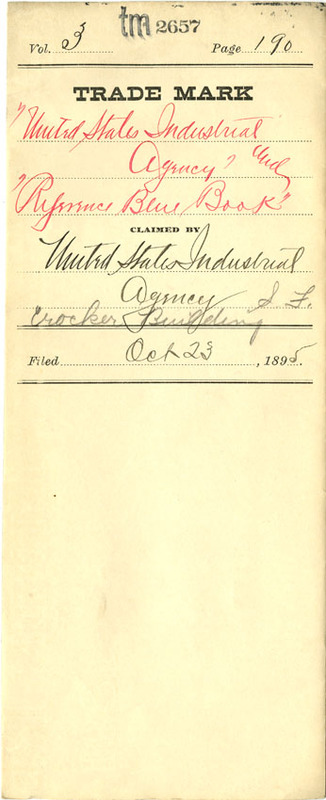 tm 2657
Vol. 3 Page 190
TRADE MARK
"United States Industrial
Agency" and
"Reference Blue Book"
CLAIMED BY
United States Industrial
Agency S. F.
Crocker Building
Filed Oct 23, 1895